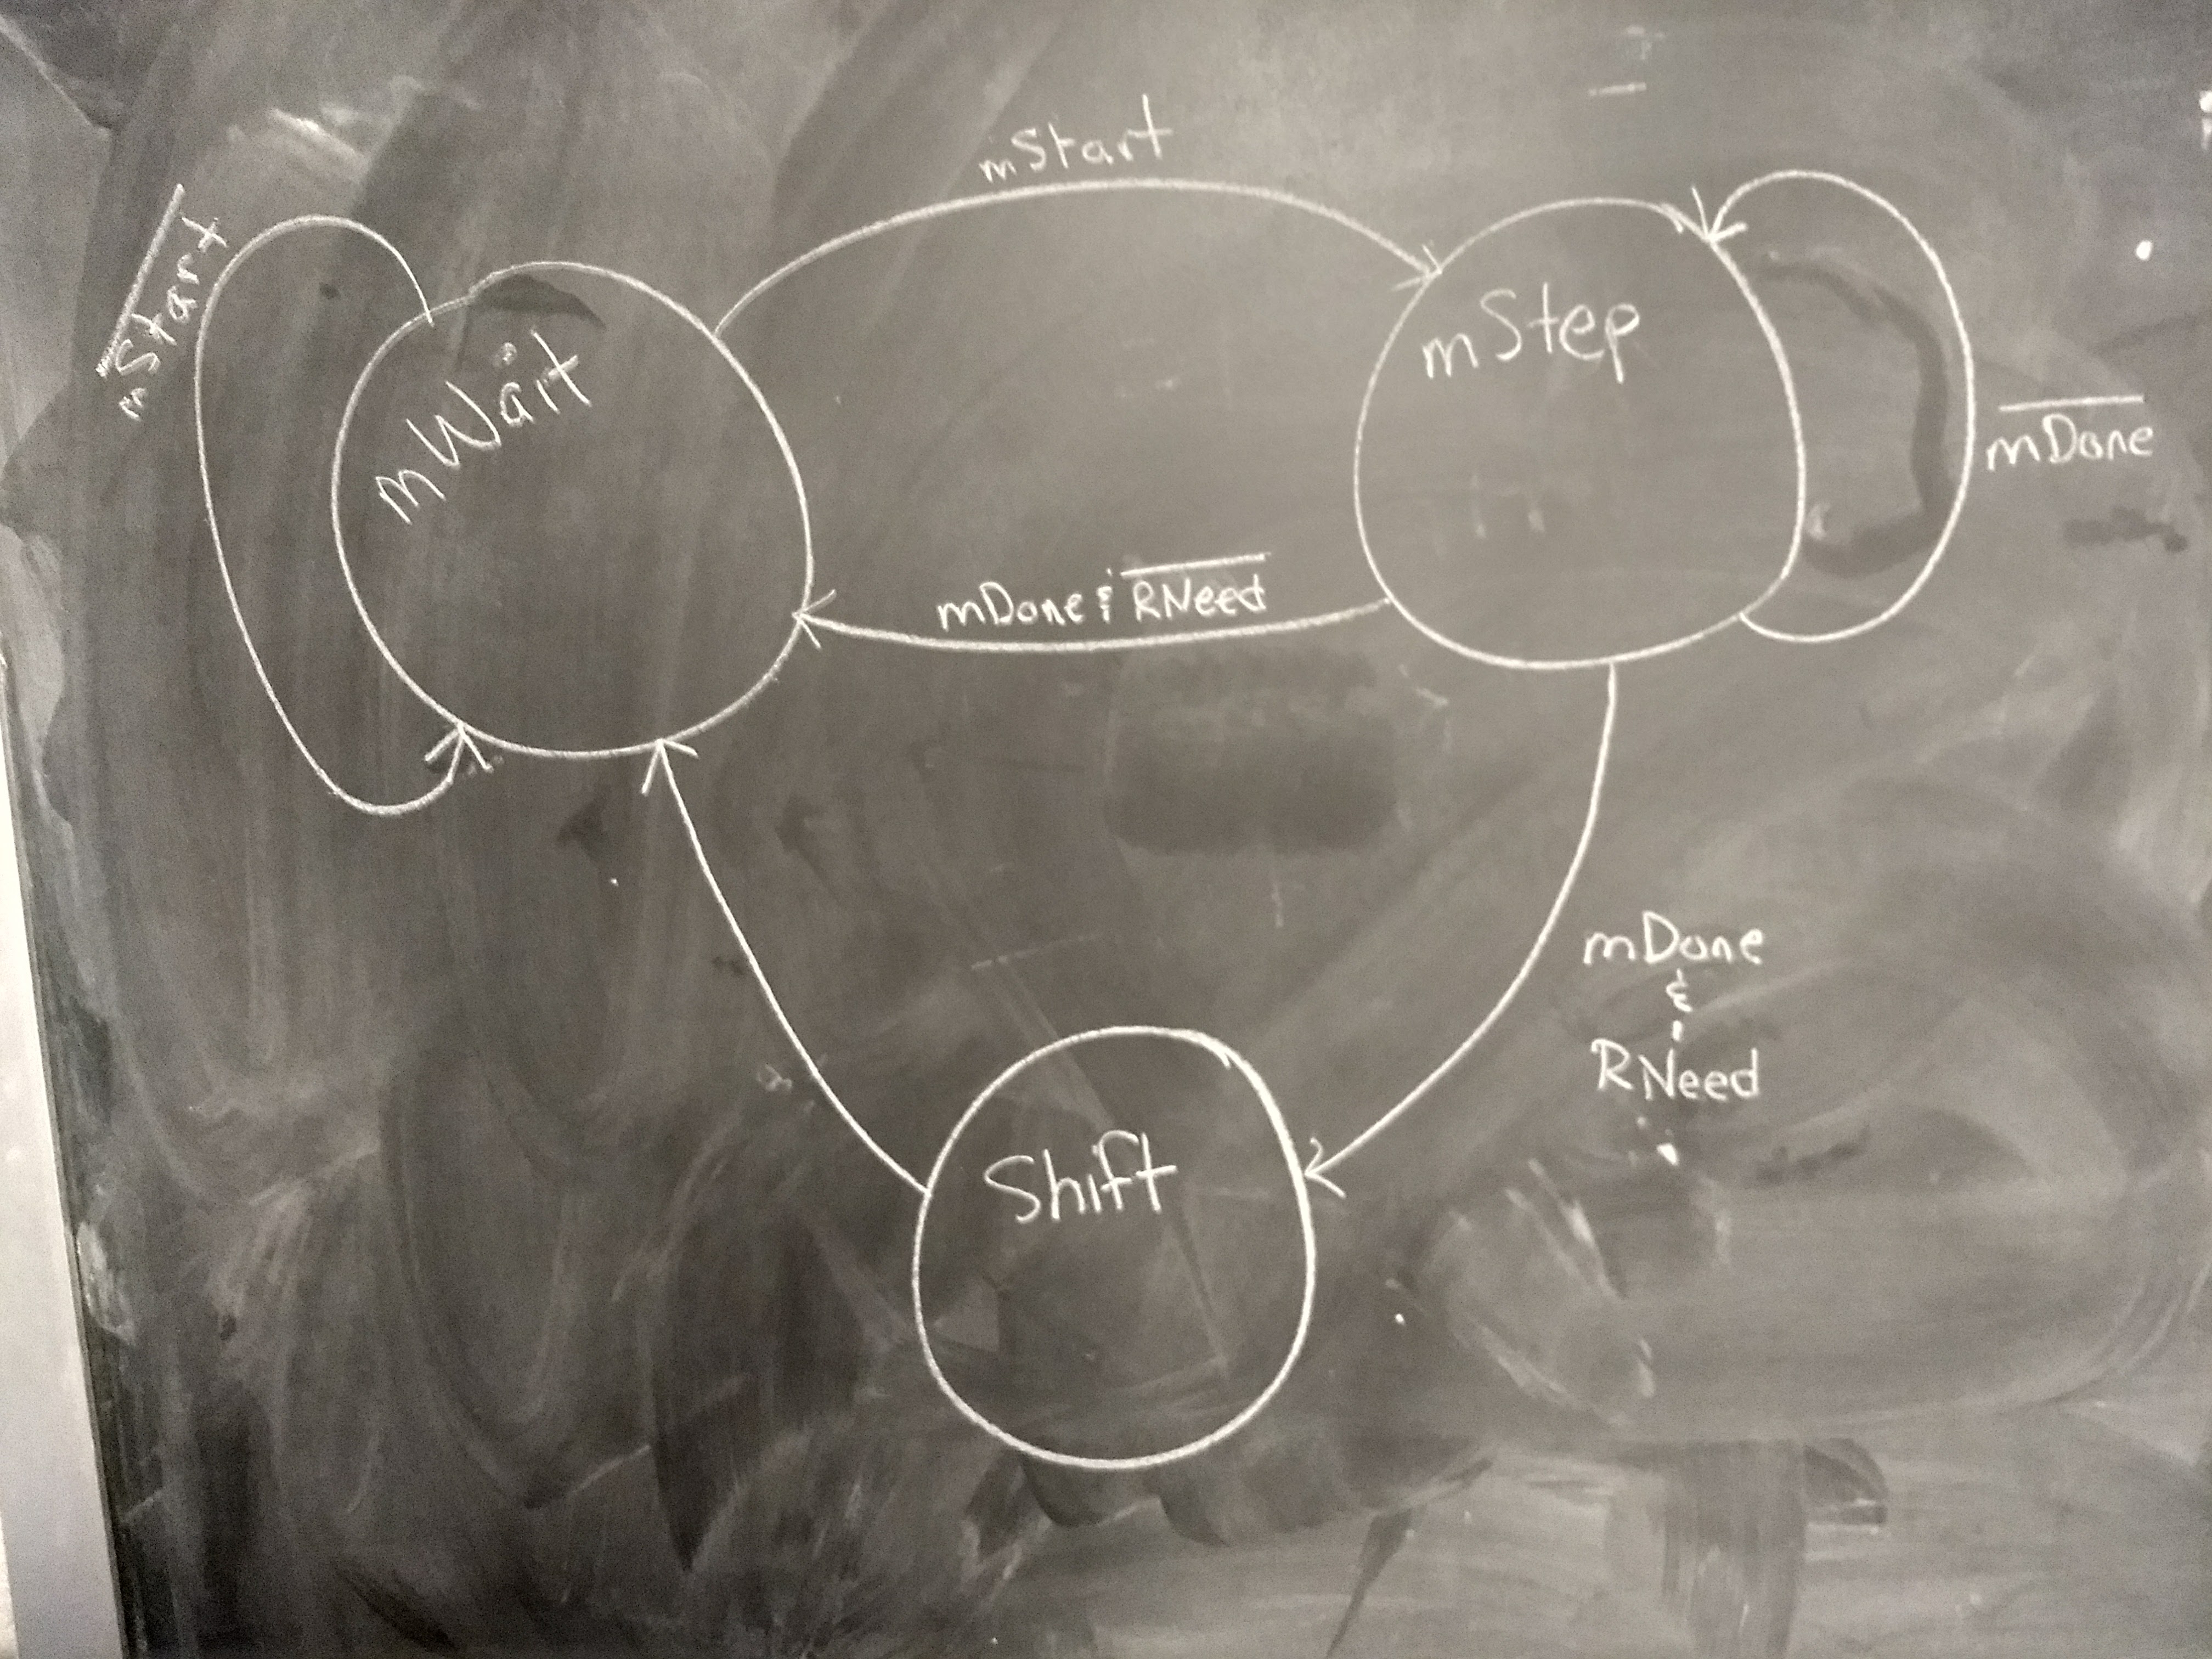 mStart
mStart
mWait
mStep
mDone
mDone & RNeed
mDone
&
RNeed
Shift